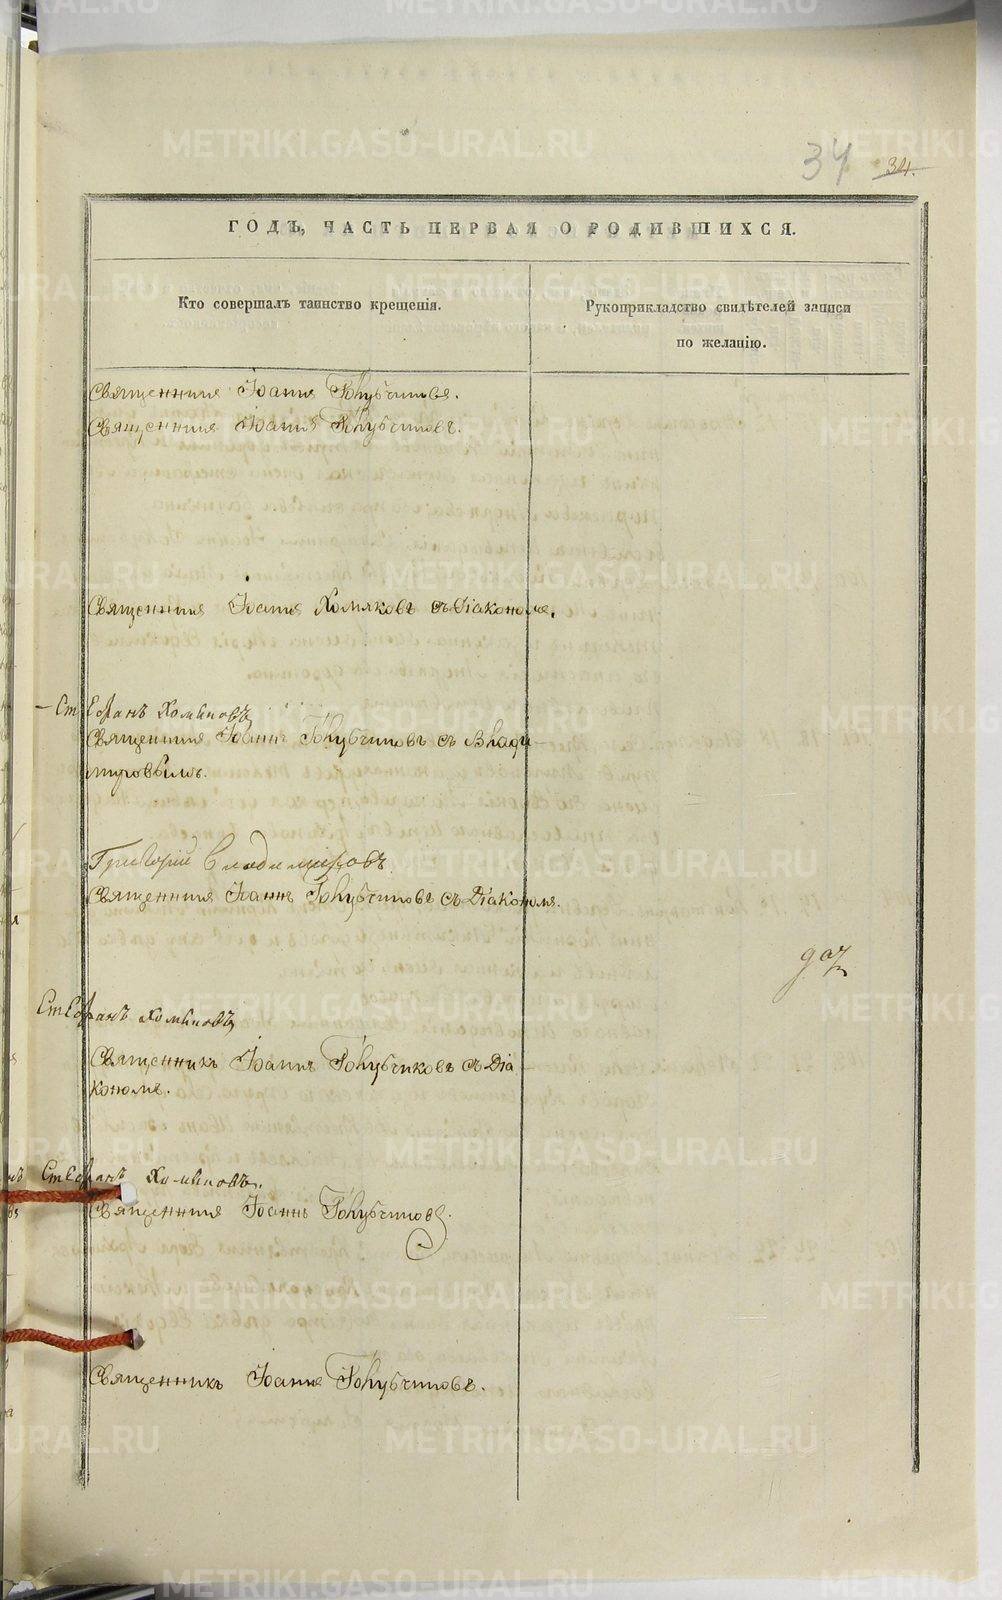 34 34.
ГОДЪ, ЧАСТЬ ПЕРВАЯ О РОДИВШИХСЯ.
Кто совершалъ таинство крещенія.
Рукоприкладство свидѣтелей записи
по желанію.
Священникъ Іоаннъ Голубчиковъ.
Священникъ Іоаннъ Голубчиковъ.
Священникъ Іоаннъ Хомяковъ съ Діакономъ.
Стефанъ Хомяковъ
Священникъ Іоаннъ Голубчиковъ съ Влади-
мировымъ.
Григорій Владимировъ.
Священникъ Іоаннъ Голубчиковъ съ Діакономъ.
Стефанъ Хомяковъ
Священникъ Іоаннъ Голубчиковъ съ Діа
кономъ.
Стефанъ Хомяковъ.
Священникъ Іоаннъ Голубчиковъ.
Священникъ Іоаннъ Голубчиковъ.
METRIKI.GASO-URAL.RU